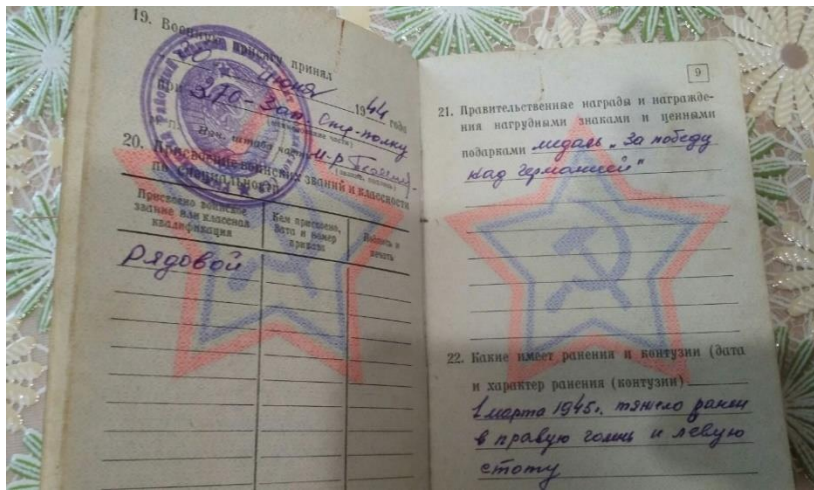 19. Военную присягу принял
июня 1944 года
при 370 - Зап. Стр. полку
(наименование части)
Нач. штаба части М-р
20. Присвоение воинских званий и классности
по специальности
Присвоено воинское
звание или классная
квалификация
Кем присвоено,
дата и номер
приказа
Подпись и
печать
Рядовой
9
21. Правительственные награды и награжде-
ния нагрудными знаками и ценными
подарками медаль „За победу
над германией"
22. Какие имеет ранения и контузии (дата
и характер ранения (контузии)
1 марта 1945г. тяжело ранен
в правую голень и левую
стопу